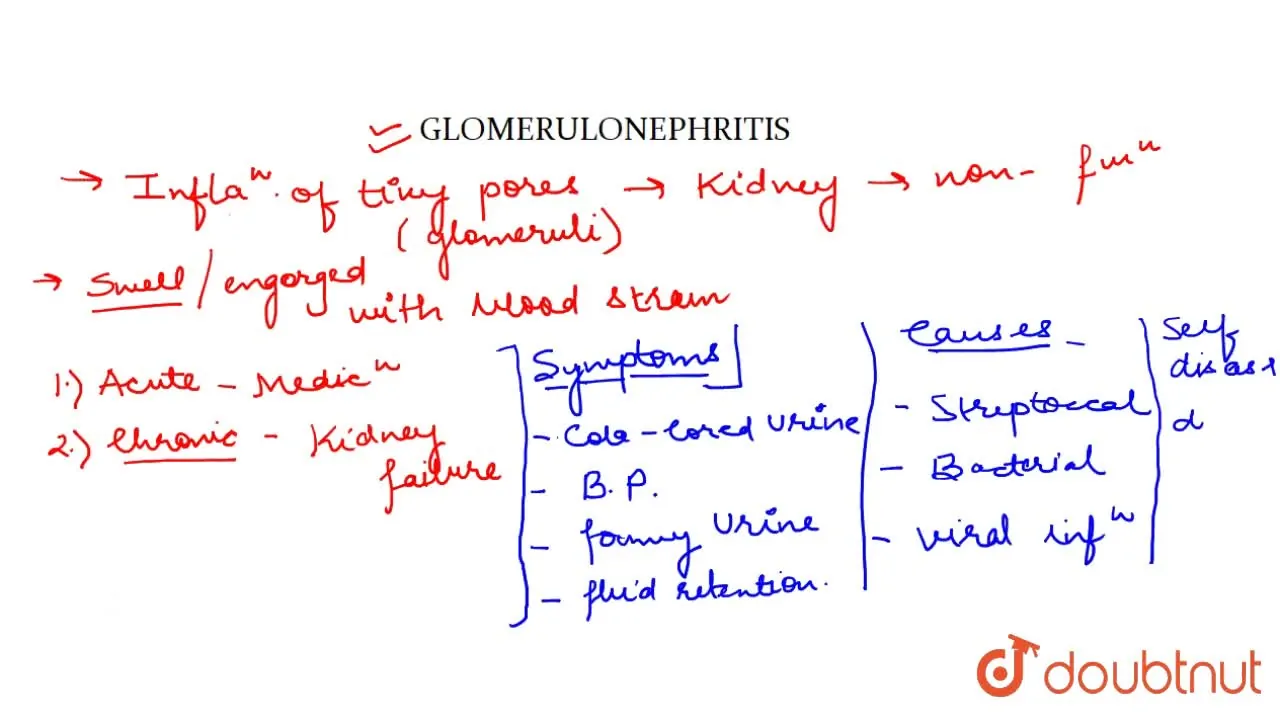 GLOMERULONEPHRITIS
→ Infla^n. of tiny pores → Kidney → non- fun^n
(glomeruli)
→ Swell / engorged
with blood stream
1.) Acute - Medic^n
2.) Chronic - Kidney
failure
Symptoms
- Cola-Lored urine
- B.P.
- foamy urine
- fluid retention.
Causes -
- Streptoccal
- Bacterial
- viral inf^n
Self
d
doubtnut